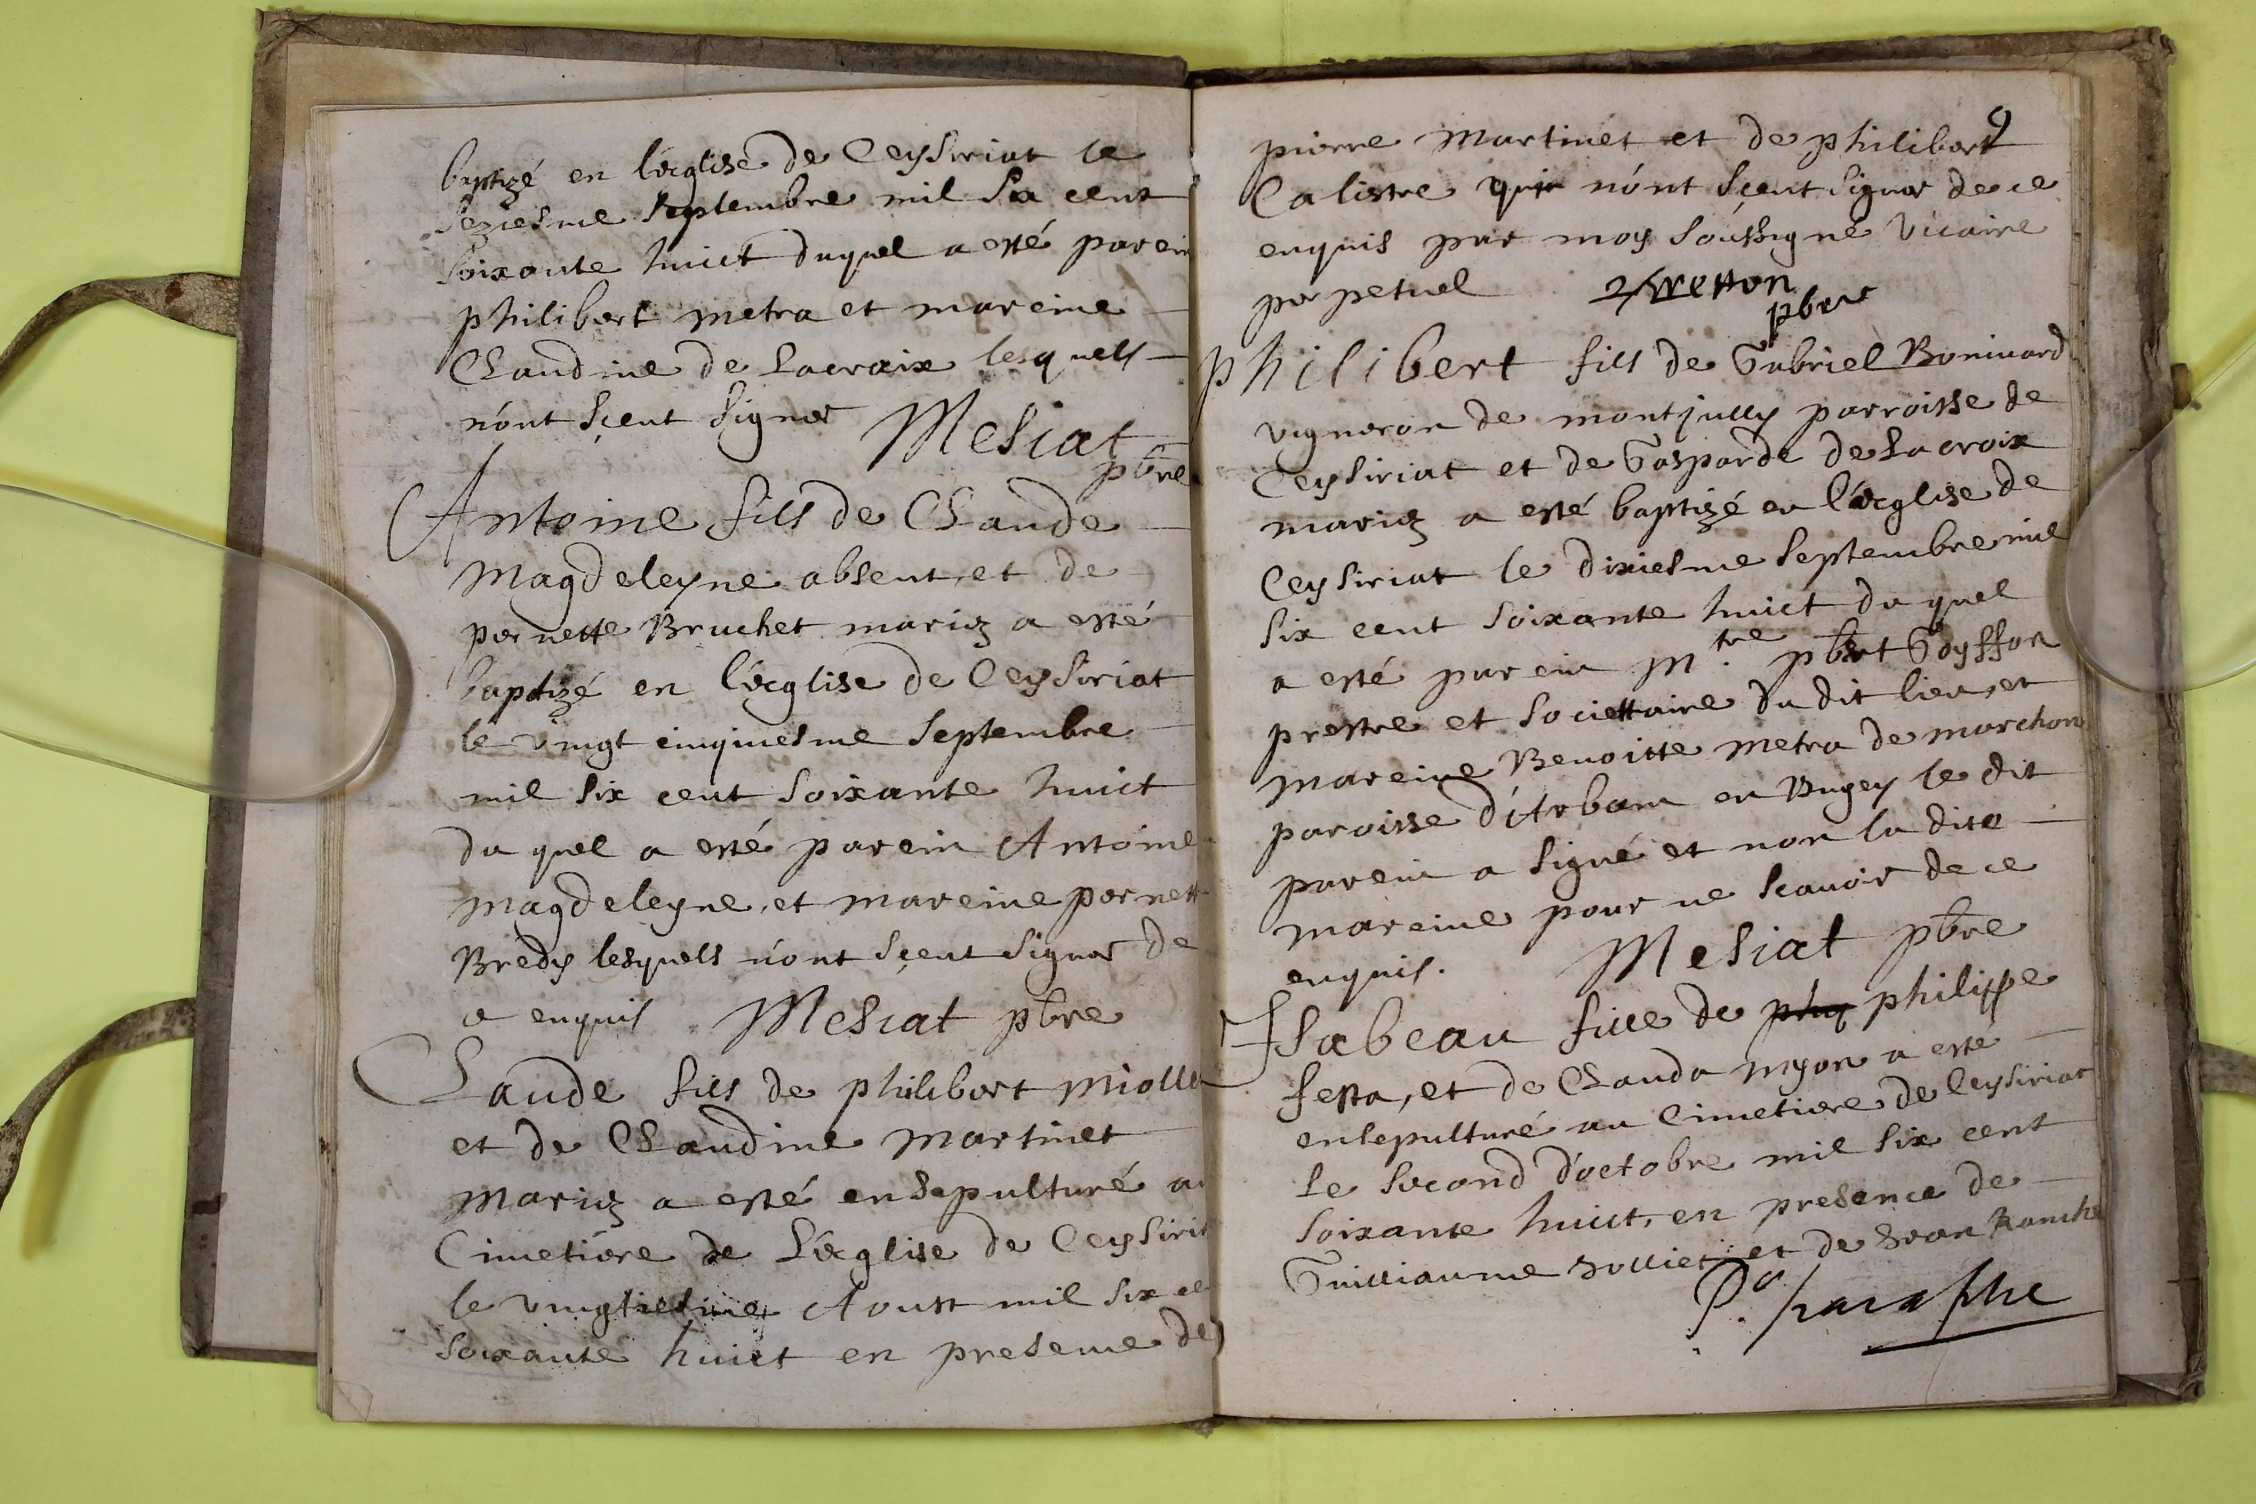 baptizé en l'ecglise de Ceysiriat le
seziesme Septembre mil six cent
soixante huict duquel a esté parein
philibert metra et mareine
Claudine de Lacroix lesquels
n'ont sçeut signer Mesiat
pbre
Antoine fils de Claude
Magdeleyne absent et de
pernette Bruchet mariez a esté
baptizé en l'ecglise de Ceysiriat
le vingt cinquiesme Septembre
mil six cent soixante huict
du quel a esté parein Antoine
Magdeleyne, et mareine pernett
Bredy lesquels n'ont sçeut signer de
ce enquis Mesiat pbre
Claude fils de philibert miolle
et de Claudine Martinet
Mariez a esté ensepulturé au
Cimetiere de L'ecglise de Ceysiri
le vingtiesme Aoust mil six ce
soixante huict en presence de
9
pierre Martinet et de philibert
Calistre qui n'ont sçeut signer de ce
enquis par moy soussigné vicaire
perpetuel
pbre
Philibert fils de Gabriel Bonivard
vigneron de montjully parroisse de
Ceysiriat et de Gasparde de Lacroix
mariez a esté baptizé en l'ecglise de
Ceysiriat le dixiesme Septembre mil
six cent soixante huict du quel
a esté parein M.tre pbert Goyffon
prestre et societtaire du dit lieu, et
mareine Benoitte metra de marchon
paroisse d'Arbam en Bugey le dit
parein a signé et non la dite
mareine pour ne scavoir de ce
enquis. Mesiat pbre
Isabeau fille de phip philippe
festa, et de Clauda myon a esté
ensepulturé au Cimetiere de Ceysiriat
Le second d'octobre mil six cent
soixante huict, en presence de
Guilliaume Jolliet et de Jean
P.r paraphe